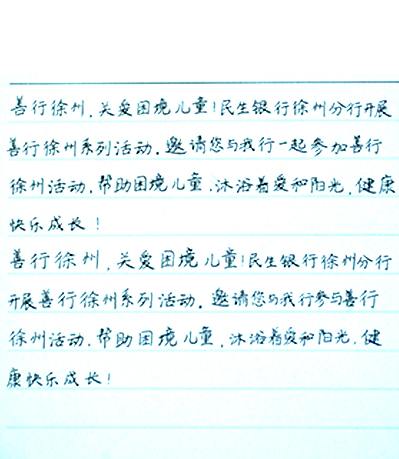 善行徐州，关爱困境儿童！民生银行徐州分行开展
善行徐州系列活动，邀请您与我行一起参加善行
徐州活动，帮助困境儿童，沐浴着爱和阳光，健康
快乐成长！
善行徐州，关爱困境儿童！民生银行徐州分行
开展善行徐州系列活动，邀请您与我行参与善行
徐州活动，帮助困境儿童，沐浴着爱和阳光，健
康快乐成长！